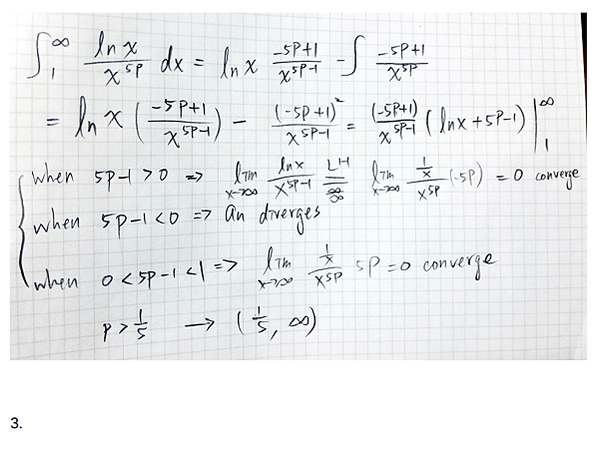 ∫₁^∞ ln x / x^{5P} dx = ln x (-5P+1)/x^{5P-1} - ∫ (-5P+1)/x^{5P}
= ln x ( (-5P+1)/x^{5P-1} ) - (-5P+1)²/x^{5P-1} = (-5P+1)/x^{5P-1} ( ln x + 5P-1 ) |₁^∞
when 5P-1 > 0 => lim x→∞ ln x / x^{5P-1} =^{LH}_{∞/∞} lim x→∞ (1/x)/x^{5P} (-5P) = 0 converge
when 5P-1 < 0 => an diverges
when 0 < 5P-1 < 1 => lim x→∞ (1/x)/x^{5P} 5P = 0 converge
P > 1/5 → (1/5, ∞)
3.